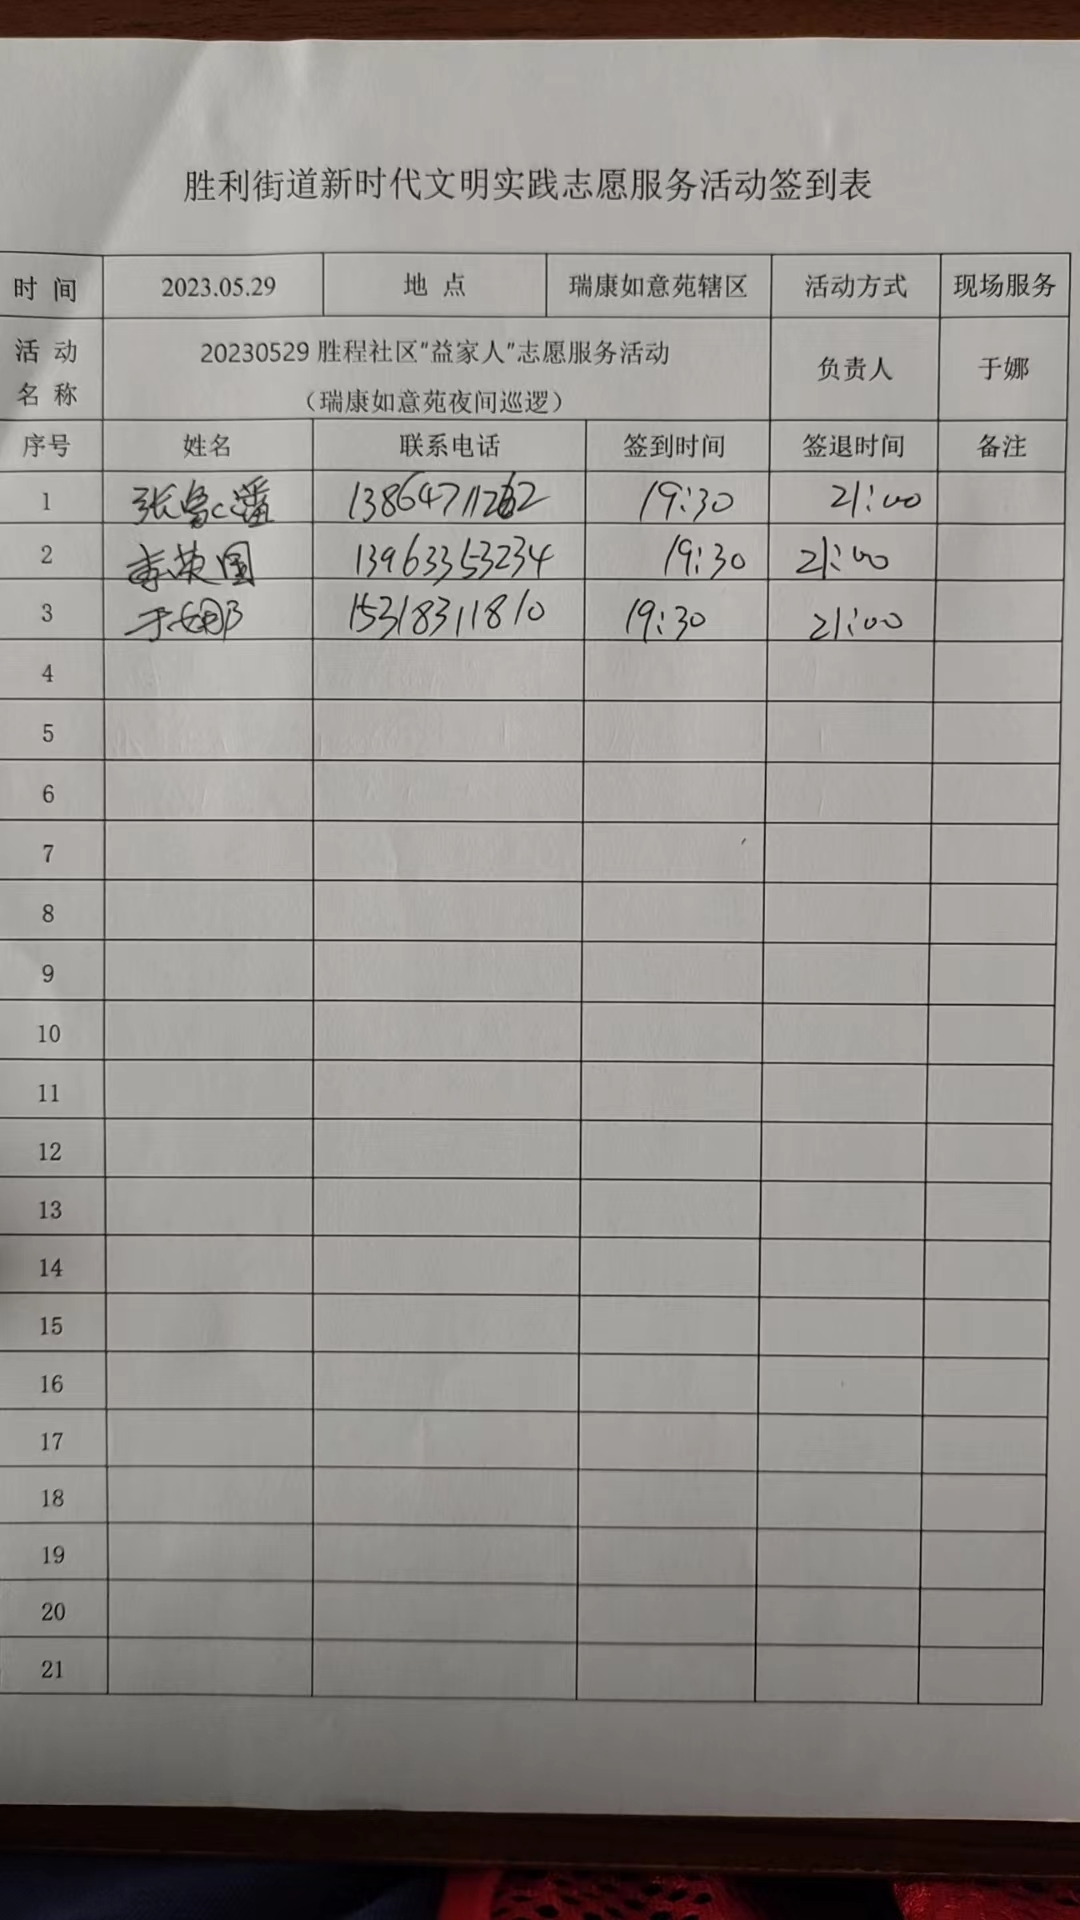 胜利街道新时代文明实践志愿服务活动签到表
时 间 2023.05.29 地 点 瑞康如意苑辖区 活动方式 现场服务
活 动 名 称 20230529 胜程社区"益家人"志愿服务活动 负责人 于娜
（瑞康如意苑夜间巡逻）
序号 姓名 联系电话 签到时间 签退时间 备注
1 张 1386471 19:30 21:00
2 李英国 13963353234 19:30 21:00
3 于娜 15318311810 19:30 21:00
4
5
6
7
8
9
10
11
12
13
14
15
16
17
18
19
20
21